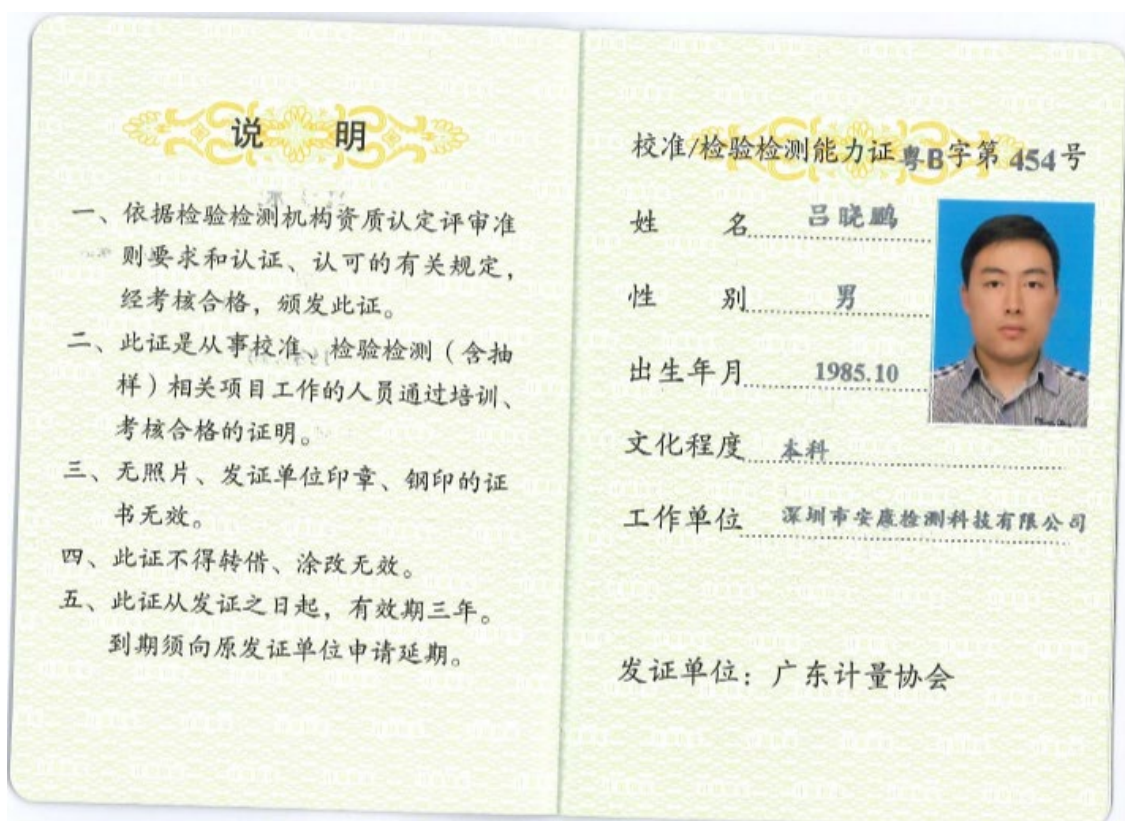 说 明
一、依据检验检测机构资质认定评审准
则要求和认证、认可的有关规定，
经考核合格，颁发此证。
二、此证是从事校准、检验检测（含抽
样）相关项目工作的人员通过培训、
考核合格的证明。
三、无照片、发证单位印章、钢印的证
书无效。
四、此证不得转借、涂改无效。
五、此证从发证之日起，有效期三年。
到期须向原发证单位申请延期。
校准/检验检测能力证粤B字第 454号
姓 名 吕晓鹏
性 别 男
出生年月 1985.10
文化程度 本科
工作单位 深圳市安康检测科技有限公司
发证单位：广东计量协会